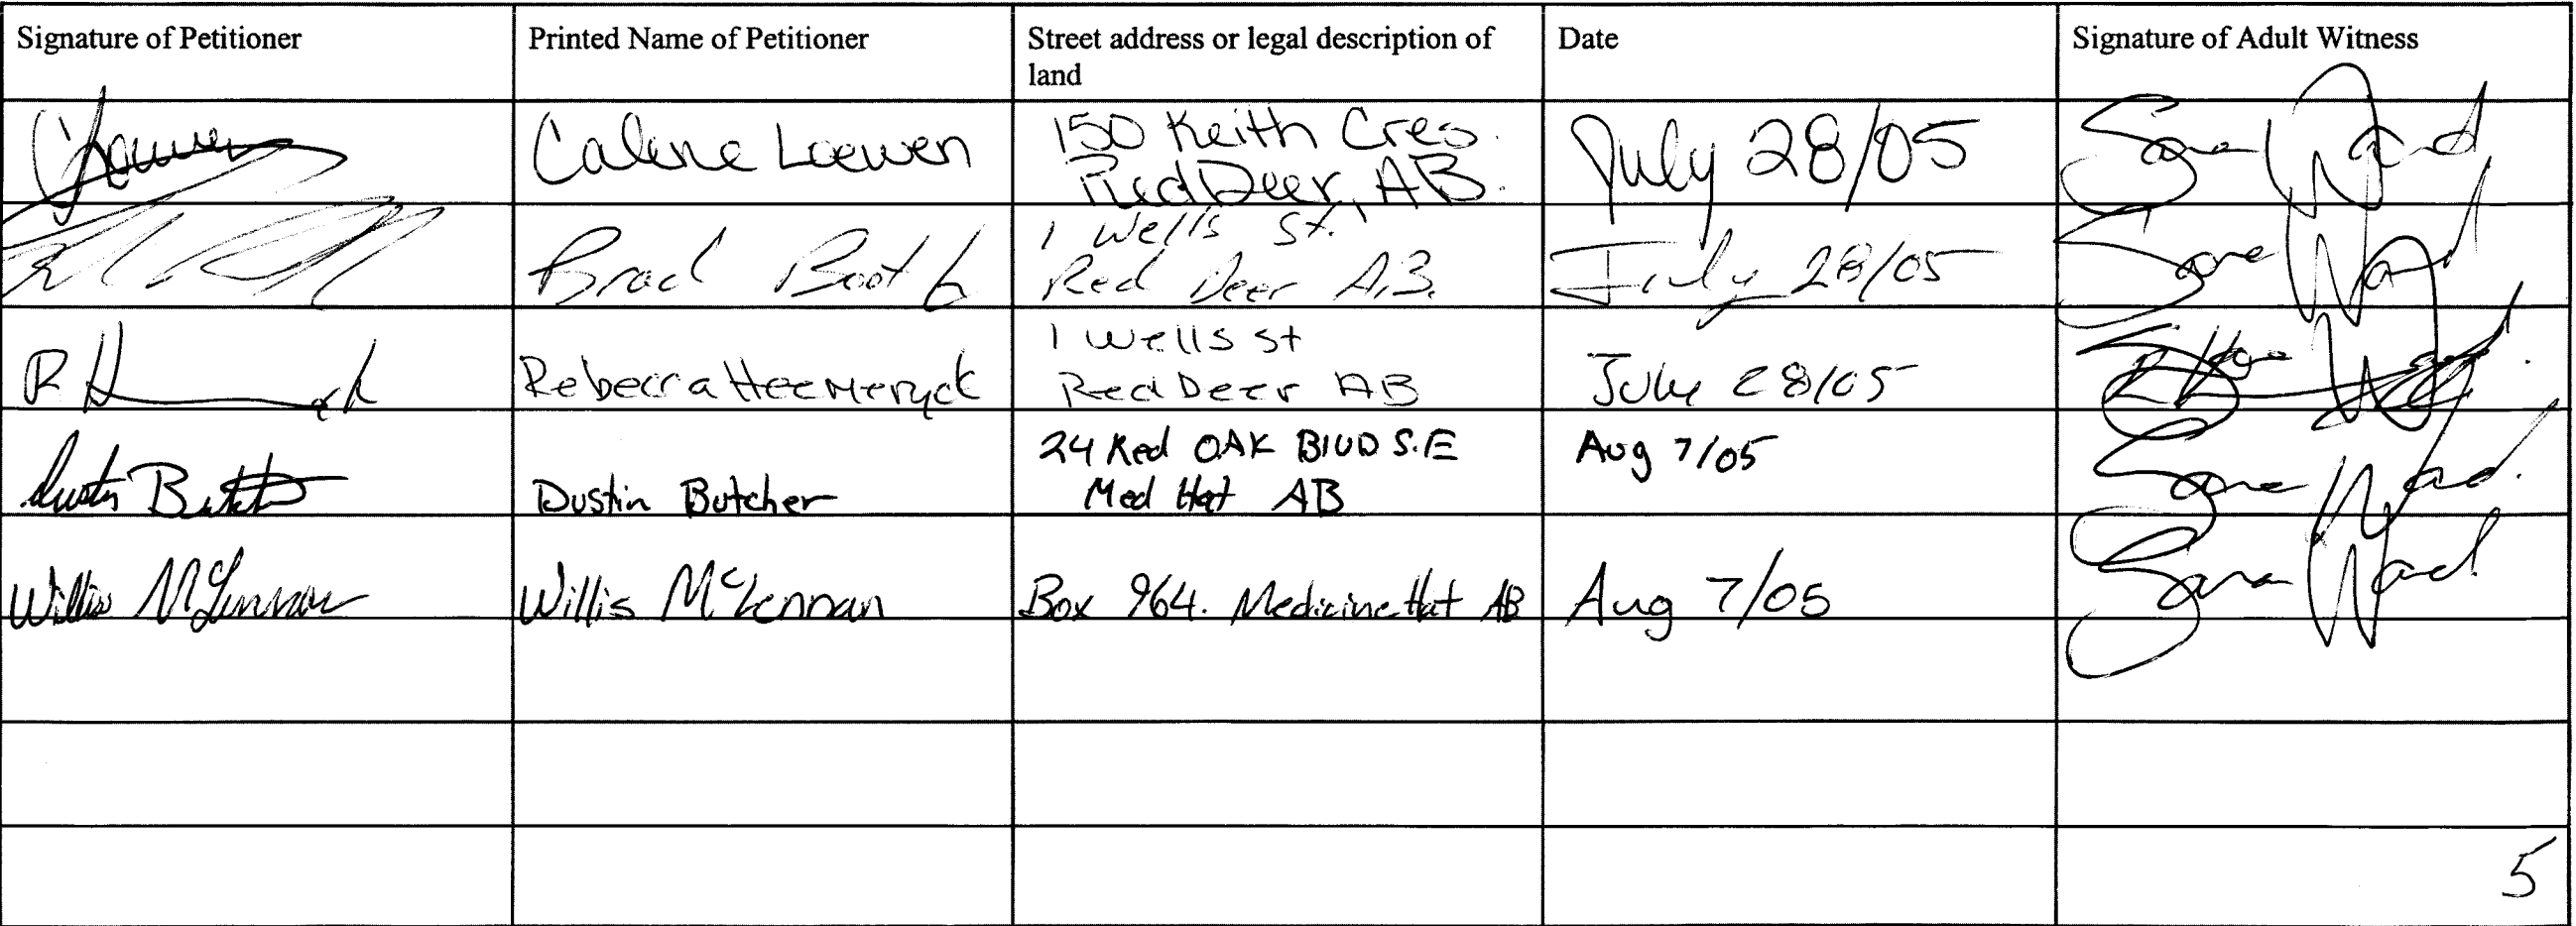 Signature of Petitioner
Printed Name of Petitioner
Street address or legal description of
land
Date
Signature of Adult Witness
Calene Loewen
150 Keith Cres.
Red Deer, AB.
July 28/05
Sara Ward
Brad Booth
1 Wells St.
Red Deer A.B.
July 28/05
Sara Ward
Rebecca Heemeryck
1 Wells St
Red Deer AB
July 28/05
Dustin Butcher
Dustin Butcher
24 Red OAK BLVD S.E
Med Hat AB
Aug 7/05
Sara Ward.
Willis McLennan
Willis McLennan
Box 964. Medicine Hat AB
Aug 7/05
Sara Ward
5